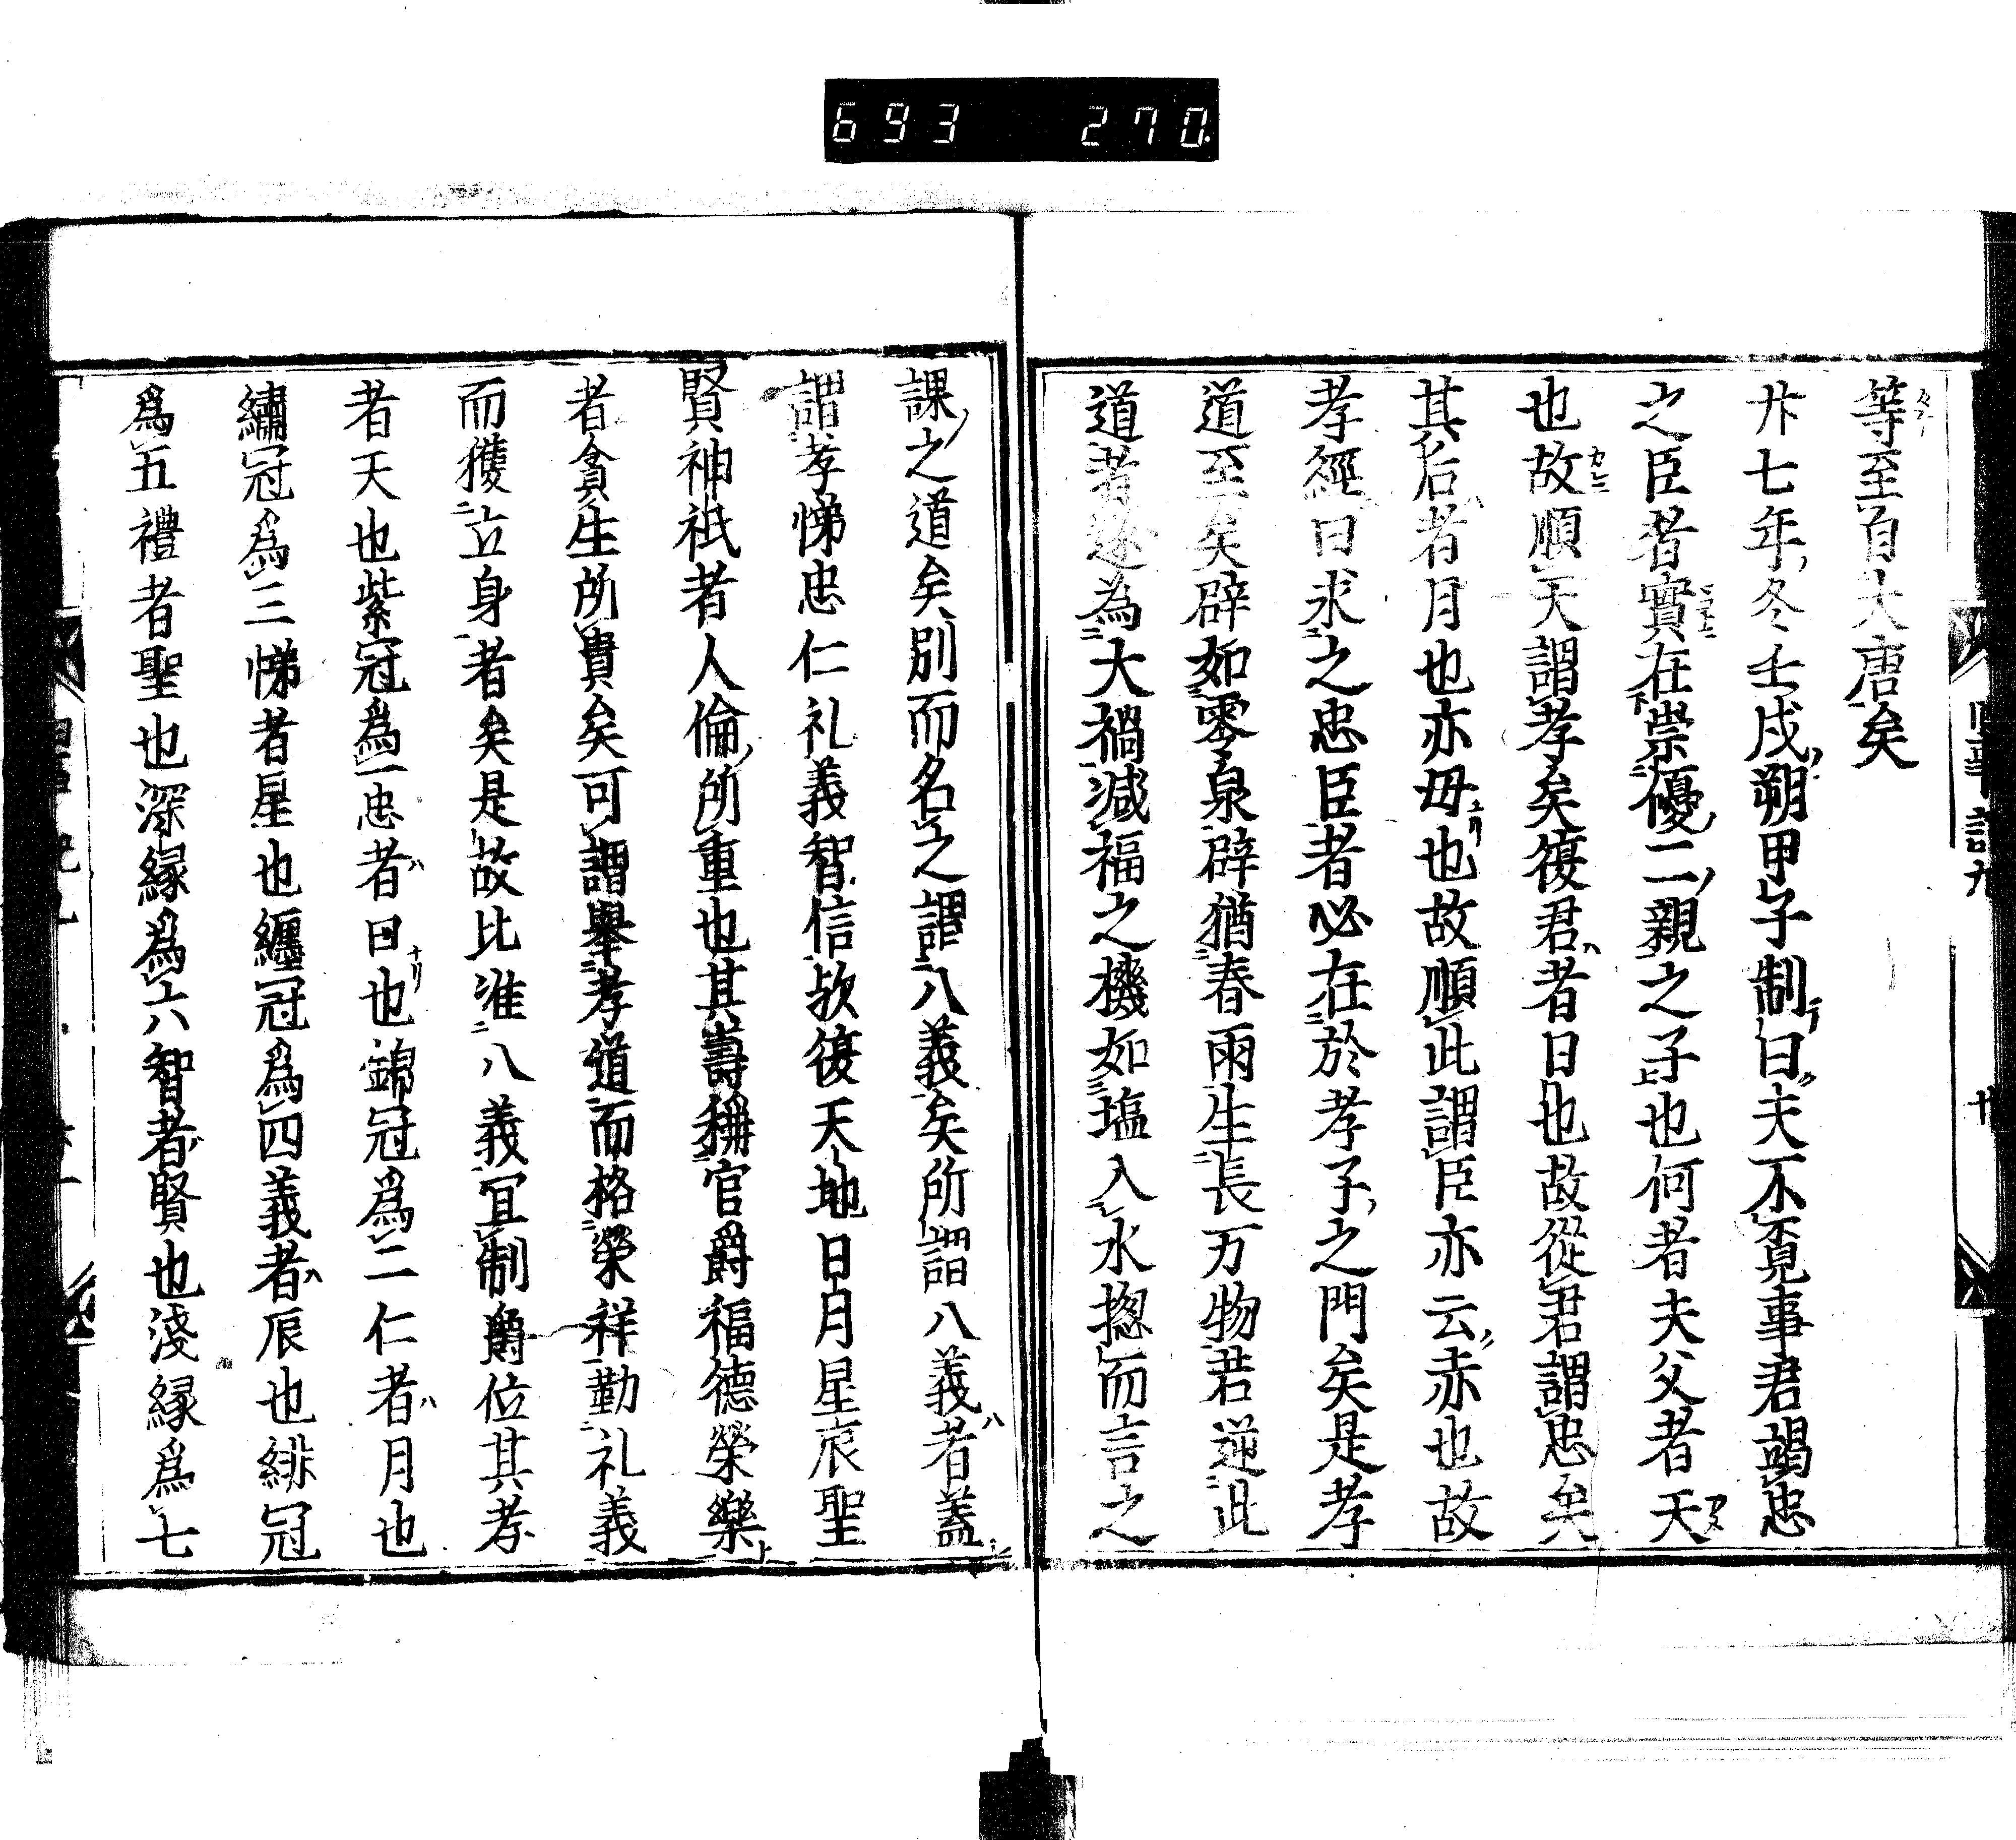 693 270
等至自大唐矣
廾七年冬壬戌朔甲子制曰夫不覔事君竭忠
之臣者實在崇優二親之子也何者夫父者天
也故順天謂孝矣復君者日也故從君謂忠矣
其后者月也亦毋也故順此謂臣亦云赤也故
孝經曰求之忠臣者必在於孝子之門矣是孝
道至矣辟如零泉辟猶春雨生長万物若逆此
道者還為大禍滅福之機如塩入水揔而言之
課之道矣別而名之謂八義矣所謂八義者蓋
謂孝悌忠仁礼義智信欤復天地日月星辰聖
賢神祇者人倫所重也其壽稱官爵福德榮樂
者貪生所貴矣可謂舉孝道而格榮祥勤礼義
而獲立身者矣是故比准八義冝制爵位其孝
者天也紫冠爲一忠者日也錦冠爲二仁者月也
繡冠爲三悌者星也纒冠爲四義者辰也緋冠
爲五禮者聖也深縁爲六智者賢也淺縁爲七